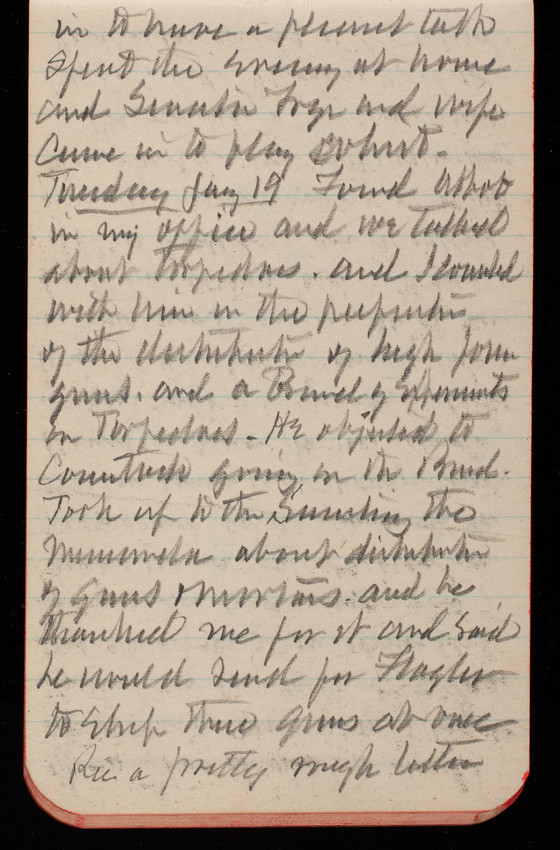 in to have a pleasant talk
Spent the evening at home
and Senator Frye and wife
came in to play whist.
Tuesday Jany 19 Found Abbot
in my office and we talked
about Torpedoes. and I
with him in the
of the distribution of high
guns. and a Board of Experiments
on Torpedoes. He objected to
Comstock going on the Board.
Took up to the Secretary the
Memoranda about distribution
of guns & mortars. and he
thanked me for it and said
he would send for Flagler
to ship these guns at once
Rec a pretty rough letter